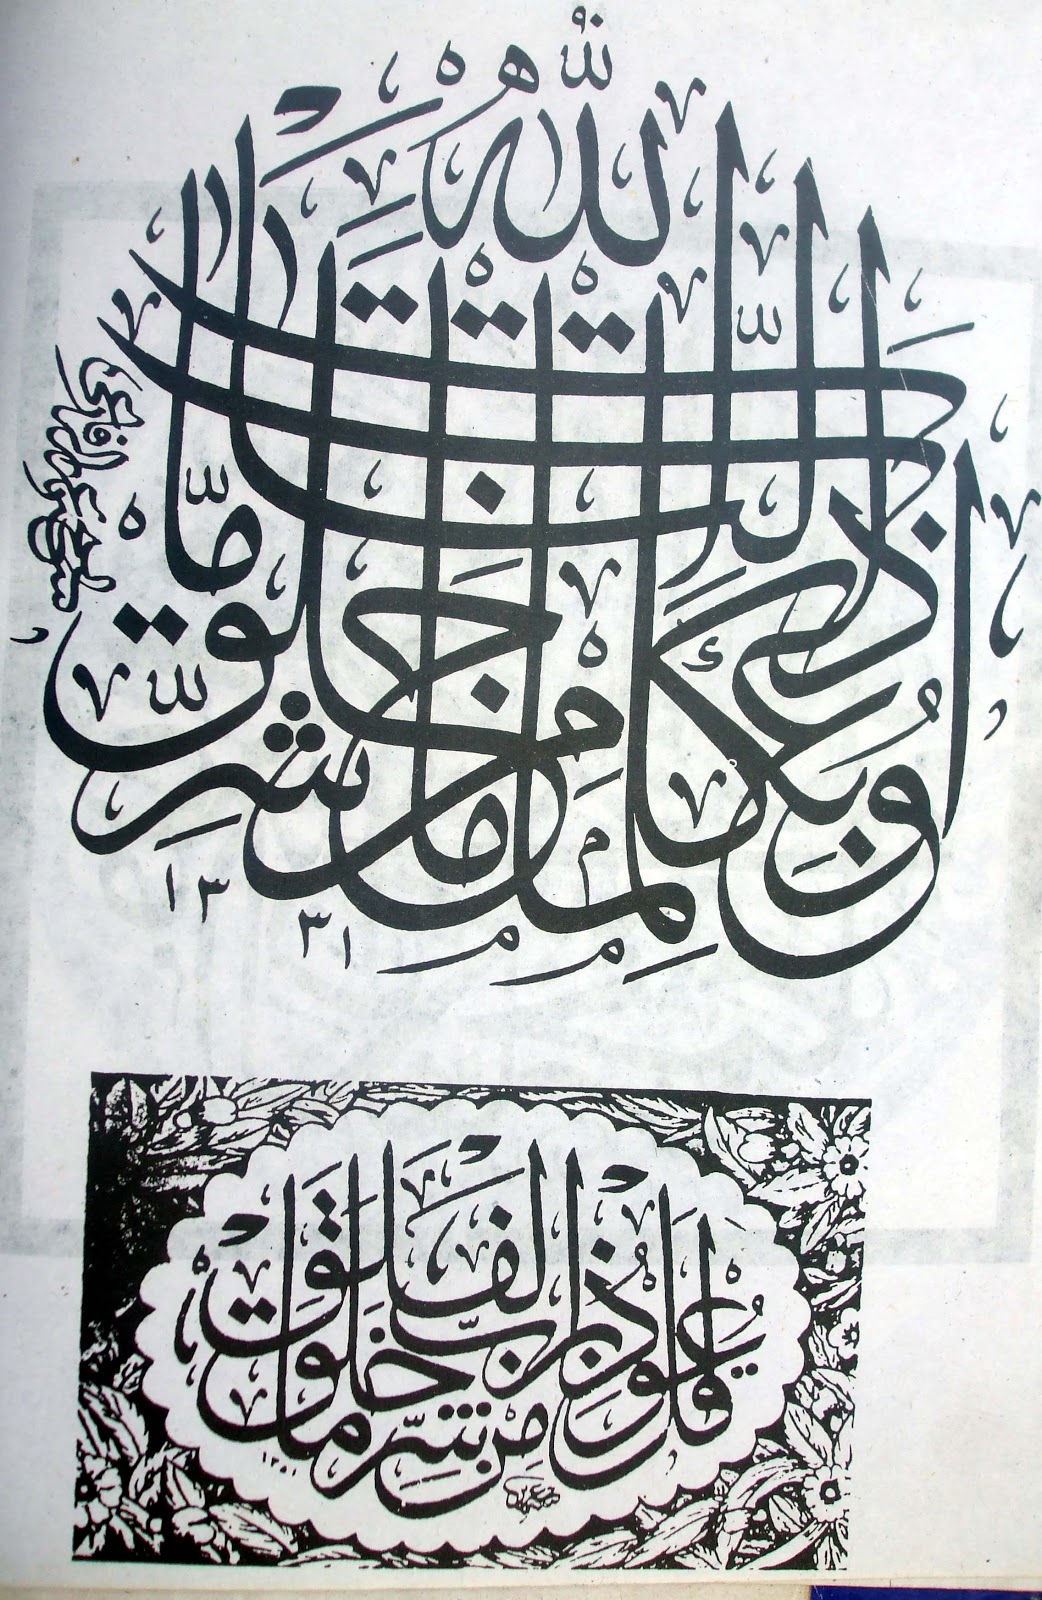 أَعُوذُ بِكَلِمَاتِ اللّٰهِ التَّامَّاتِ مِنْ شَرِّ مَا خَلَقَ
١٣٣١
قُلْ أَعُوذُ بِرَبِّ الْفَلَقِ مِنْ شَرِّ مَا خَلَقَ